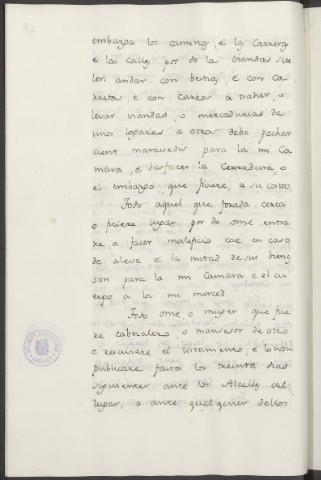 embarga los caminos, e las Carreras
e las calles por do la viandas sue
len andar con bestias, e con ca
rretas, e con carros a traher, o
levar viandas, o mercadurias de
unos logares a otros debe pechar
cient maravedis para la mi Ca
mara, e desfacer la Cerradura, o
el embargo que ficiere, a su costa.
Todo aquel que forada cerca
o ficiere lugar por do ome entra
re a facer maleficio cae en caso
de aleve e la mitad de sus bienes
son para la mi Camara e el cu
erpo a la mi merced.
Todo ome, o muger que fue
re cabezalero, o mansesor de otro
e recibiere el testamento, e lo non
publicare fasta los treinta dias
siguientes ante los Alcalles del
lugar, o ante qualquier dellos